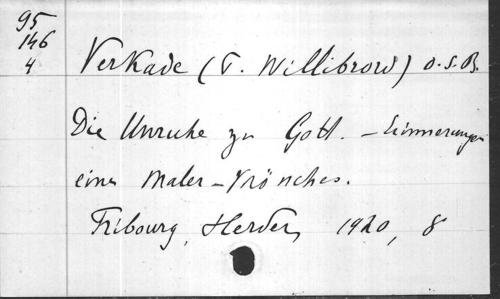 95
146
4
Verkade (P. Willibrord) O.S.B.
Die Unruhe zu Gott. - Erinnerungen
eines Maler-Mönches.
Fribourg, Herder, 1920, 8